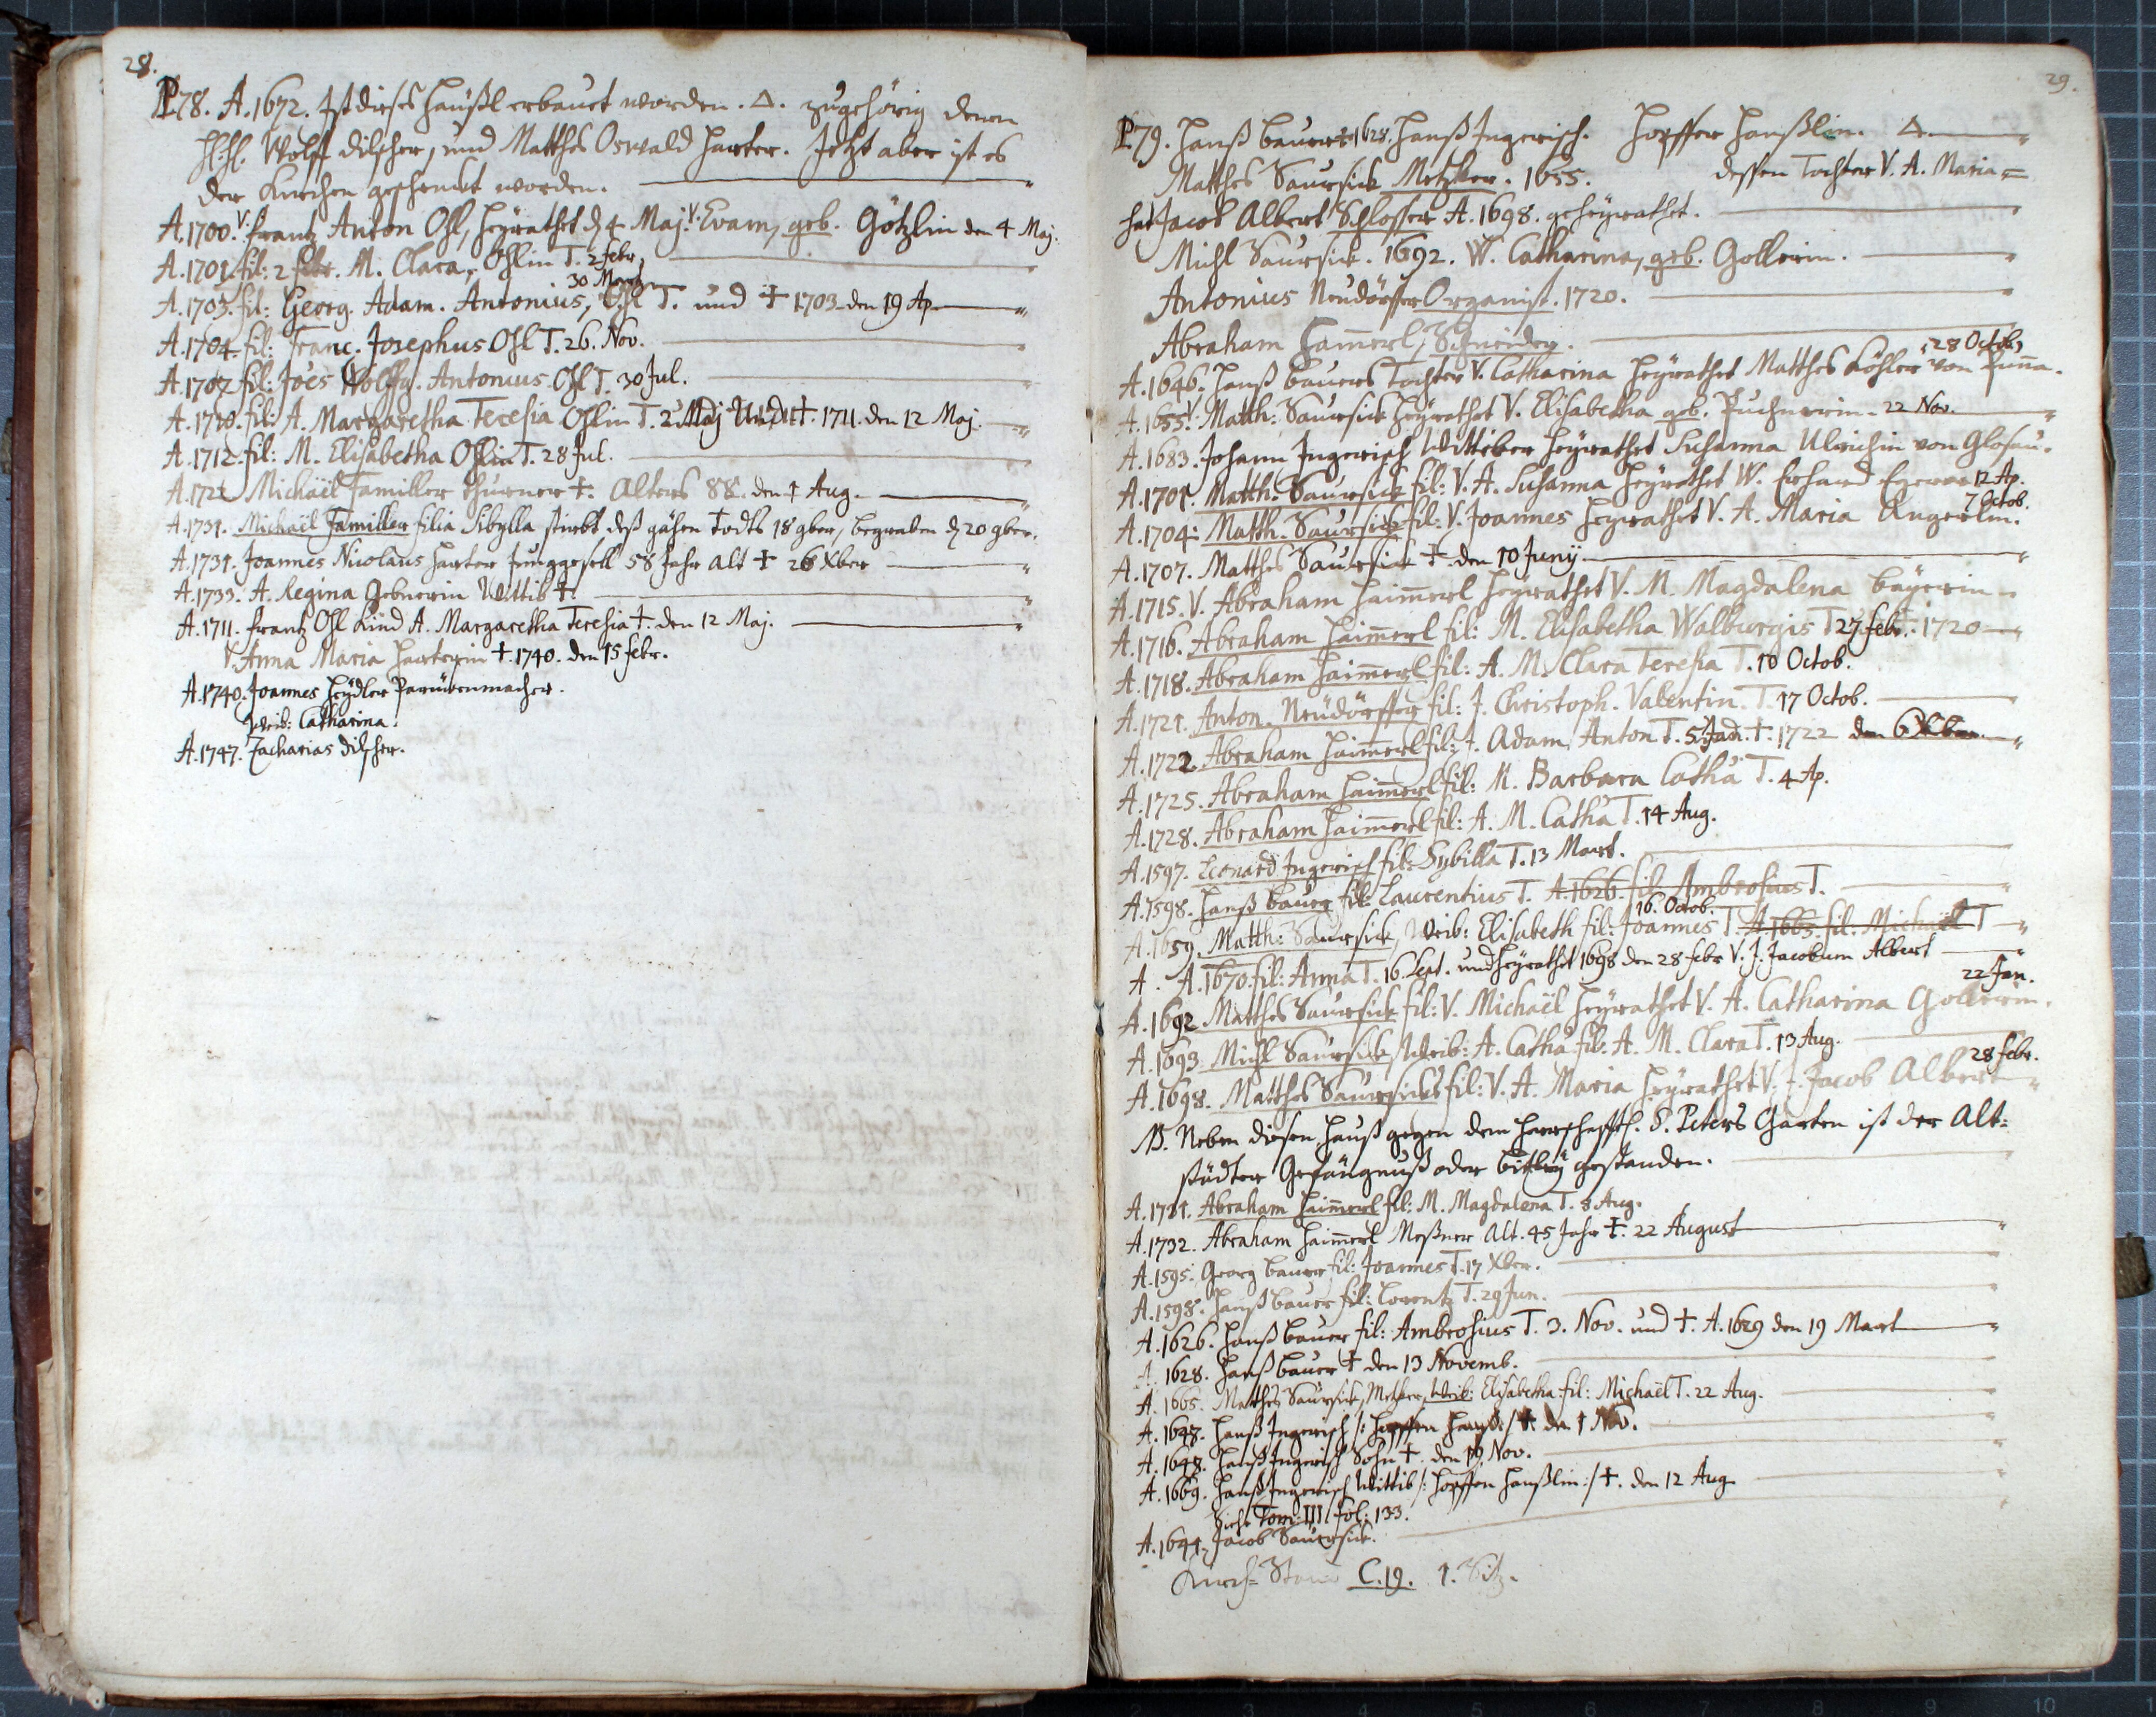 28.
P78. A.1672. Ist dieses Häußl erbauet worden. Δ. zugehörig denen
Wolff Dilscher, und Matthes Oswald Harter. Jetzt aber ist es
der Kirchen geschenckt worden.
A.1700. V. Frantz Anton Ohl, heÿrathet d 4 Maj. V. Evam, geb. Götzlin den 4 Maj.
A.1701. fil: 2 febr. M. Clara, Ohlin T. 2 febr.
30 Mart
A.1703. fil: Georg. Adam. Antonius, Ohl T. und † 1703 den 19 Ap
A.1704. fil: Franc. Josephus Ohl T. 26. Nov.
A.1707 fil: Joes Wolffg. Antonius Ohl T. 30 Jul.
A.1710. fil: A. Margaretha Teresia Ohlin T. 2 Maj Und †. 1711. den 12 Maj.
A.1712. fil: M. Elisabetha Ohlin T. 28 Jul.
A.1721 Michaël Familler Thurner †. Alters 88. den 1 Aug.
A.1731. Michaël Familler filia Sibylla stirbt deß gähen Todts 18 9ber, begraben d 20 9ber.
A.1731. Joannes Nicolaus Harter Junggesell 58 Jahr alt † 26 Xber
A.1733. A. Regina Gebnerin Wittib †.
A.1711. Frantz Ohl Kind A. Margaretha Teresia †. den 12 Maj.
V. Anna Maria Harterin † 1740. den 15 febr.
A.1740. Joannes Heÿdler Paruckenmacher.
Weib: Catharina.
A.1747. Zacharias Dilscher.
29.
P79. Hanß Bauer † 1628. Hanß Ingerisch. Hopffen Hanßlin. Δ.
Matthes Saursick Metzker. 1655. dessen Tochter V. A. Maria =
hat Jacob Albert Schlosser A. 1698. geheÿrathet.
Michl Saursick. 1692. W. Catharina, geb. Gollerin.
Antonius Neudörffer Organist. 1720.
Abraham Haim̄erl, Schneider.
28 Octob.
A.1646. Hanß Bauers Tochter V. Catharina heÿrathet Matthes Köhler von
A.1655. V. Matth: Saursick heÿrathet V. Elisabetha geb. Puchnerin. 22 Nov.
A.1683. Johann Ingerisch Wittiber heÿrathet Susanna Ulrichin von Glosau.
A.1701. Matth. Saursick fil: V. A. Susanna heÿrathet W. Erhard Egerer 12 Ap.
7 Octob.
A.1704: Matth. Saursick fil: V. Joannes heÿrathet V. A. Maria Angerlin.
A.1707. Matthes Saursick †. den 10 Junÿ
A.1715. V. Abraham Haim̄erl heÿrathet V. M. Magdalena Baÿerin
A.1716. Abraham Haim̄erl fil: M. Elisabetha Walburgis T 27 febr. † 1720
A.1718. Abraham Haim̄erl fil: A. M. Clara Teresia T. 10 Octob.
A.1721. Anton. Neudörffer fil: J. Christoph. Valentin. T. 17 Octob.
A.1722. Abraham Haim̄erl fil: J. Adam Anton T. 5 Jan. †. 1722 den 6 Xber.
A.1725. Abraham Haim̄erl fil: M. Barbara Catha T. 4 Ap.
A.1728. Abraham Haim̄erl fil: A. M. Catha T. 14 Aug.
A.1597. Leonard Ingerisch fil: Sybilla T. 13 Mart.
A.1598. Hanß Bauer fil: Laurentius T. A.1626. fil Ambrosius T.
16. Octob.
A.1659. Matth: Saursick, Weib: Elisabeth fil: Joannes T. A.1665. fil: Michaël T
A. A.1670. fil: Anna T. 16. Sept. und heÿrathet 1698 den 28 febr V. J. Jacobum Albert
22 Jan.
A.1692 Matthes Saursick fil: V. Michaël heÿrathet V. A. Catharina Gollerin.
A.1693 Michl Saursick, Weib: A. Catha fil: A. M. Clara T. 13 Aug.
28 febr.
A.1698. Matthes Saursicks fil: V. A. Maria heÿrathet V. J. Jacob Albert
NB. Neben diesen Hauß gegen dem Herrschafftl. S. Peters Garten ist der Alt:
städter Gefängnuß oder gestanden.
A.1731. Abraham Haim̄erl fil: M. Magdalena T. 8 Aug.
A.1732. Abraham Haim̄erl Meßner Alt. 45 Jahr †. 22 August
A.1595. Georg Bauer fil: Joannes T. 17 Xber.
A.1598. Hanß Bauer fil: Lorentz T. 29 Jun.
A.1626. Hanß Bauer fil: Ambrosius T. 3. Nov. und †. A.1629 den 19 Mart
A.1628. Hanß Bauer † den 13 Novemb.
A.1665. Matthes Saursick, Metzker, Weib: Elisabetha fil: Michaël T. 22 Aug.
A.1648. Hanß Ingerisch /: Hopffen Hanß :/ †. den 1 Nov.
A.1648. Hanß Ingerisch Sohn †. den 19 Nov.
A.1669. Hanß Ingerisch Wittib /: Hopffen Hanßlin :/ †. den 12 Aug
Siehe Tom: III Fol: 133.
A.1644. Jacob Saursick.
C.19. 1. Sitz.